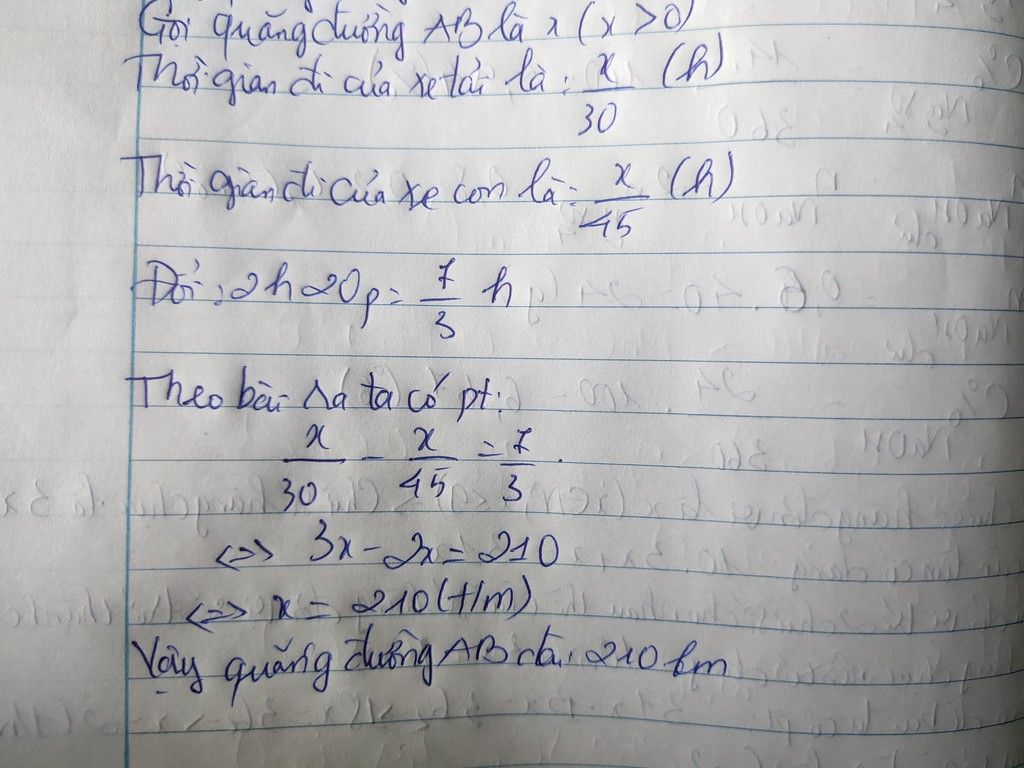 Gọi quãng đường AB là x (x > 0)
Thời gian đi của xe tải là: x/30 (h)
Thời gian đi của xe con là: x/45 (h)
Đổi: 2h20p = 7/3 h
Theo bài ra ta có pt:
x/30 - x/45 = 7/3.
<=> 3x - 2x = 210
<=> x = 210 (t/m)
Vậy quãng đường AB dài 210 km